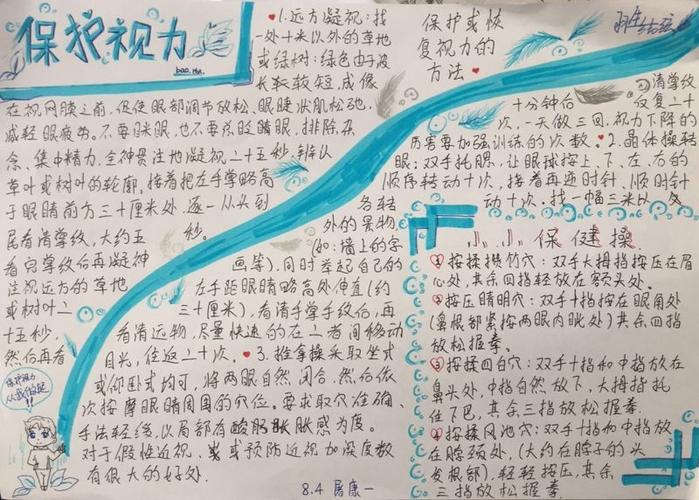 保护视力
bao hu
❤1.远方凝视：找
一处十米以外的草地
或绿树：绿色由于波
长较短，成像
在视网膜之前，促使眼部调节放松、眼睫状肌松弛，
减轻眼疲劳。不要眯眼，也不要总眨眼睛，排除杂
念、集中精力、全神贯注地凝视二十五秒，辨认
草叶或树叶的轮廓，接着把左手掌略高
于眼睛前方三十厘米处，逐一从头到
尾看清掌纹，大约五
秒。
看完掌纹后再凝神
注视远方的草地
或树叶二
十五秒，
然后再看
保护或恢
复视力的
方法❤
清掌纹
十分钟后
反复二十
次，一天做三回，视力下降的
厉害要加强训练的次数。❤2.晶体操转
眼：双手托腮，让眼球按上、下、左、右的
顺序转动十次，接着再逆时针、顺时针
各转
动十次。找一幅三米以
外的景物
(如：墙上的字
画等)，同时举起自己的
左手距眼睛略高处伸直(约
三十厘米)，看清手掌手纹后，再
看清远物，尽量快速的在二者间移动
目光，往返二十次。❤3.推拿操采取坐式
或仰卧式均可，将两眼自然闭合，然后依
次按摩眼睛周围的穴位。要求取穴准确、
手法轻缓，以局部有酸胀感为度。
对于假性近视、或预防近视加深度数
有很大的好处.
保护视力
从我做起
!!
小小保健操
①按揉攒竹穴：双手大拇指按压在眉
心处，其余四指轻放在客头处。
②按压睛明穴：双手十指按在眼角处
(鼻根部紧按两眼内眦处)其余四指
放松握拳。
③按揉四白穴：双手十指和中指放在
鼻头处，中指自然放下，大拇指托
住下巴，其余三指放松握拳。
④按揉风池穴：双手十指和中指放
在脖颈处，(大约在脖子的头
发根部)，轻轻按压，其余
三指放松握拳
8.4 房康一